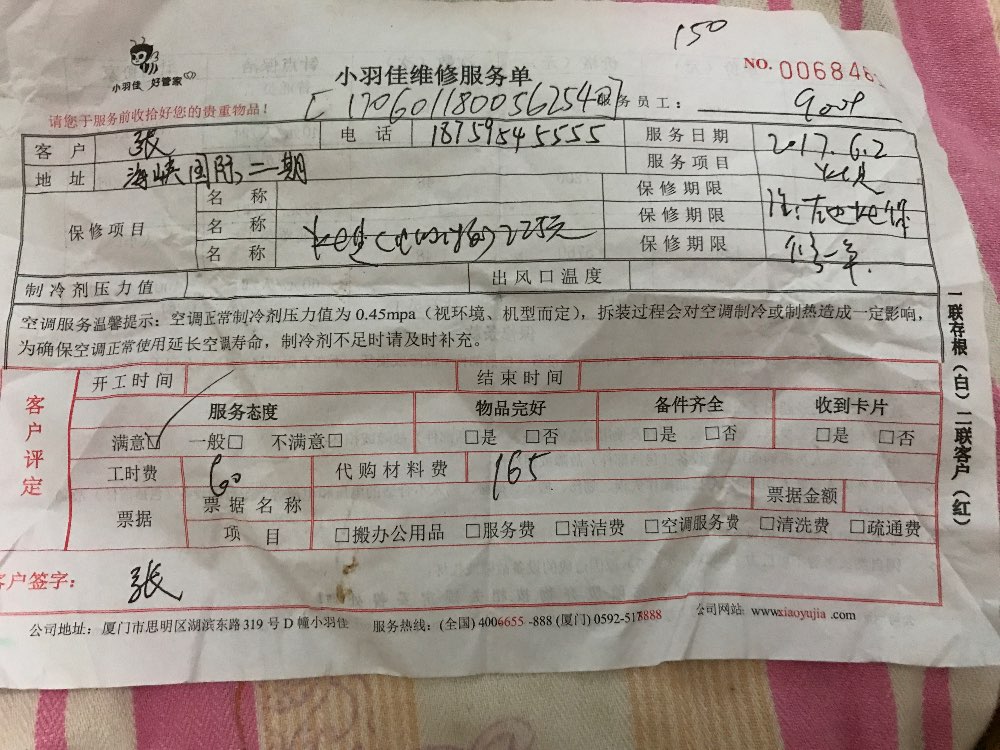 150
小羽佳 好管家
小羽佳维修服务单
NO. 006846
请您于服务前收拾好您的贵重物品！
[170601180056254 服务员工：
客 户 张 电 话 18759545555 服务日期 2017.6.2
地 址 海峡国际二期 服务项目
保修项目 名 称 保修期限
名 称 保修期限
名 称 225元 保修期限 保修一年.
制冷剂压力值 出风口温度
空调服务温馨提示：空调正常制冷剂压力值为 0.45mpa（视环境、机型而定），拆装过程会对空调制冷或制热造成一定影响，
为确保空调正常使用延长空调寿命，制冷剂不足时请及时补充。
客户评定
开工时间 结束时间
服务态度 物品完好 备件齐全 收到卡片
满意□ 一般□ 不满意□ □是 □否 □是 □否 □是 □否
工时费 60 代购材料费 165
票据 票 据 名 称 票据金额
项 目 □搬办公用品 □服务费 □清洁费 □空调服务费 □清洗费 □疏通费
客户签字： 张
公司地址：厦门市思明区湖滨东路 319 号 D 幢小羽佳 服务热线：(全国) 4006655 -888 (厦门) 0592-518888 公司网站: www.xiaoyujia .com
一联存根（白）二联客户（红）